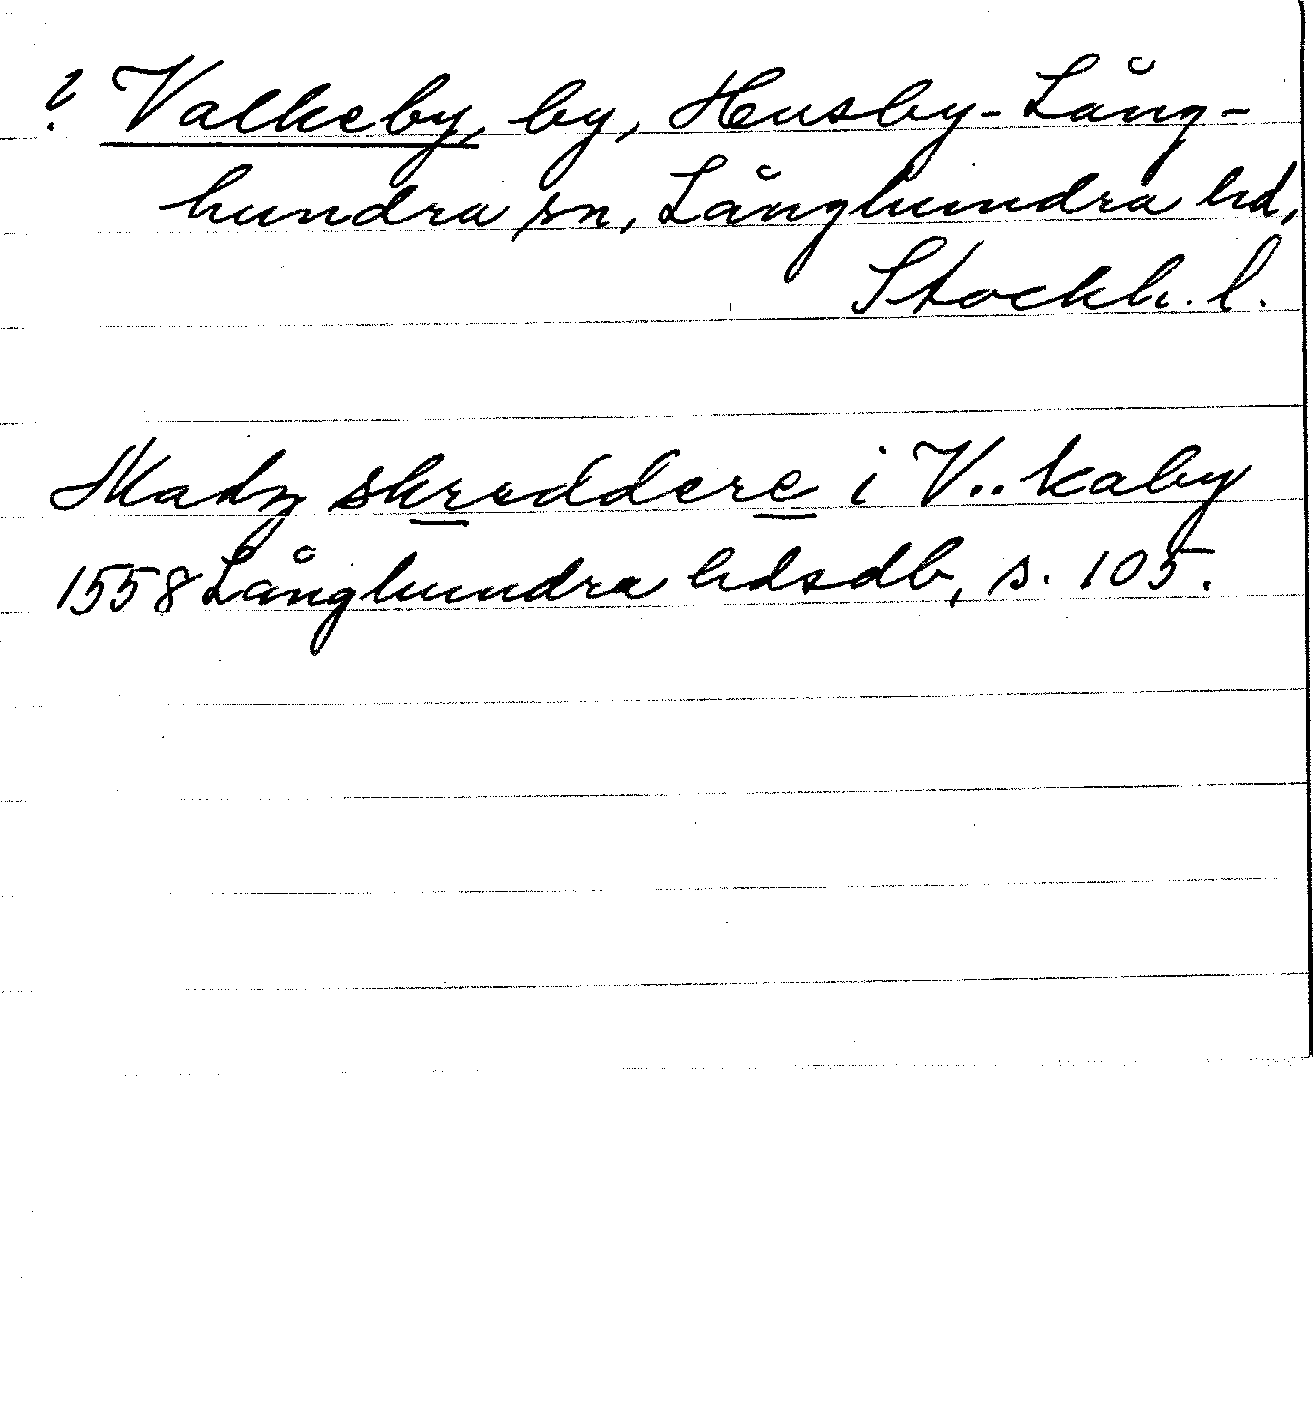 ? Valkeby, by, Husby-Lång-
hundra sn, Långhundra hd,
Stockh. l.
Madz skreddere i V..kaby
1558 Långhundra hdsdb, s. 105.